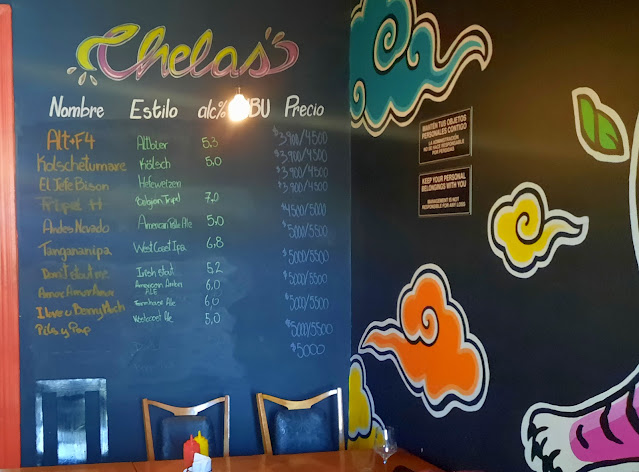 Chelas
Nombre Estilo alc% IBU Precio
Alt+F4 Altbier 5,3 $3900/4500
Kolschetumare Kölsch 5,0 $3900/4500
El Jefe Bison Hefeweizen $3900/4500
Tripel H Belgian Tripel 7,0 $3900/4500
Andes Nevado American Pale Ale 5,0 $4500/5000
Tangananipa West Coast Ipa 6,8 $5000/5500
Irish stout 5,2 $5000/5500
Amar Amar Amar American Amber ALE 6,0 $5000/5500
I love u Benny Much Farmhouse Ale 6,0 $5000/5500
Pils y Pap Westcoast Ale 5,0 $5000/5500
$5000
MANTÉN TUS OBJETOS
PERSONALES CONTIGO
LA ADMINISTRACIÓN
NO SE HACE RESPONSABLE
POR PÉRDIDAS
KEEP YOUR PERSONAL
BELONGINGS WITH YOU
MANAGEMENT IS NOT
RESPONSIBLE FOR ANY LOSS